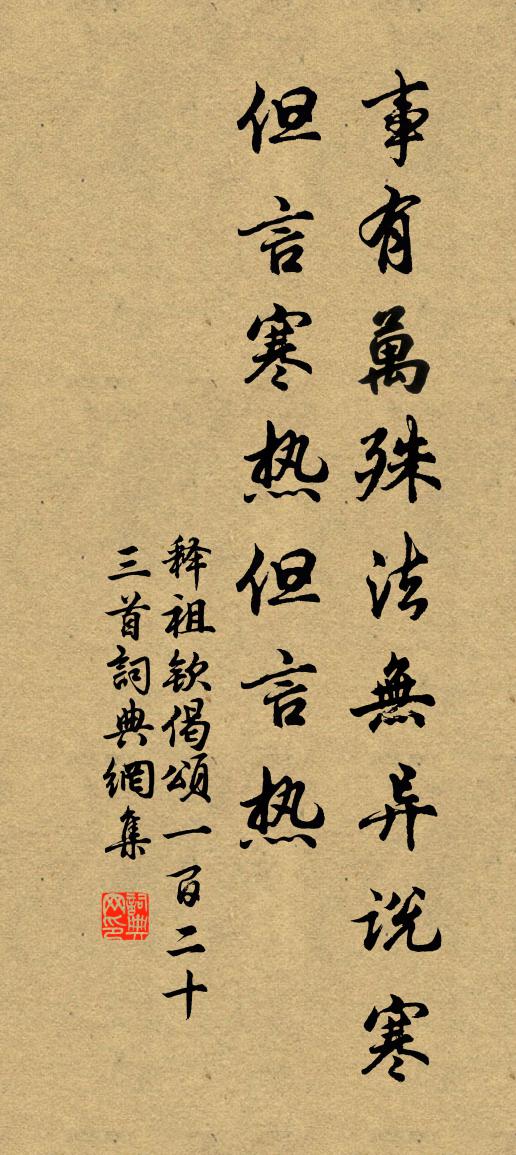 事有萬殊法無异说寒
但言寒热但言热
释祖钦偈頌一百二十
三首詞典網集
詞典
网印